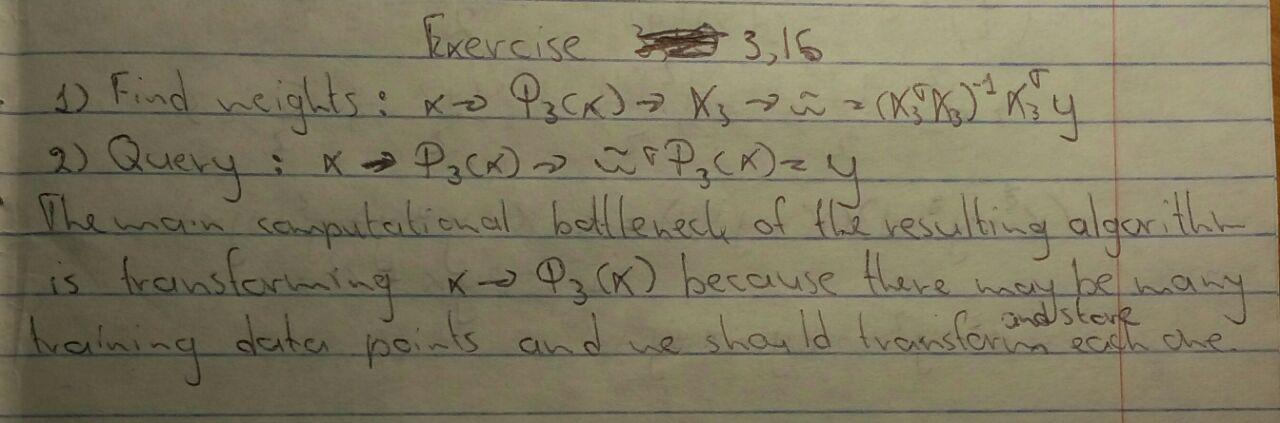 Exercise 3,16
1) Find weights: x → Φ₃(x) → X₃ → w̃ = (X₃ᵀX₃)⁻¹X₃ᵀy
2) Query: x → Φ₃(x) → w̃ᵀΦ₃(x) = y
The main computational bottleneck of the resulting algorithm
is transforming x → Φ₃(x) because there may be many
and store
training data points and we should transform each one.